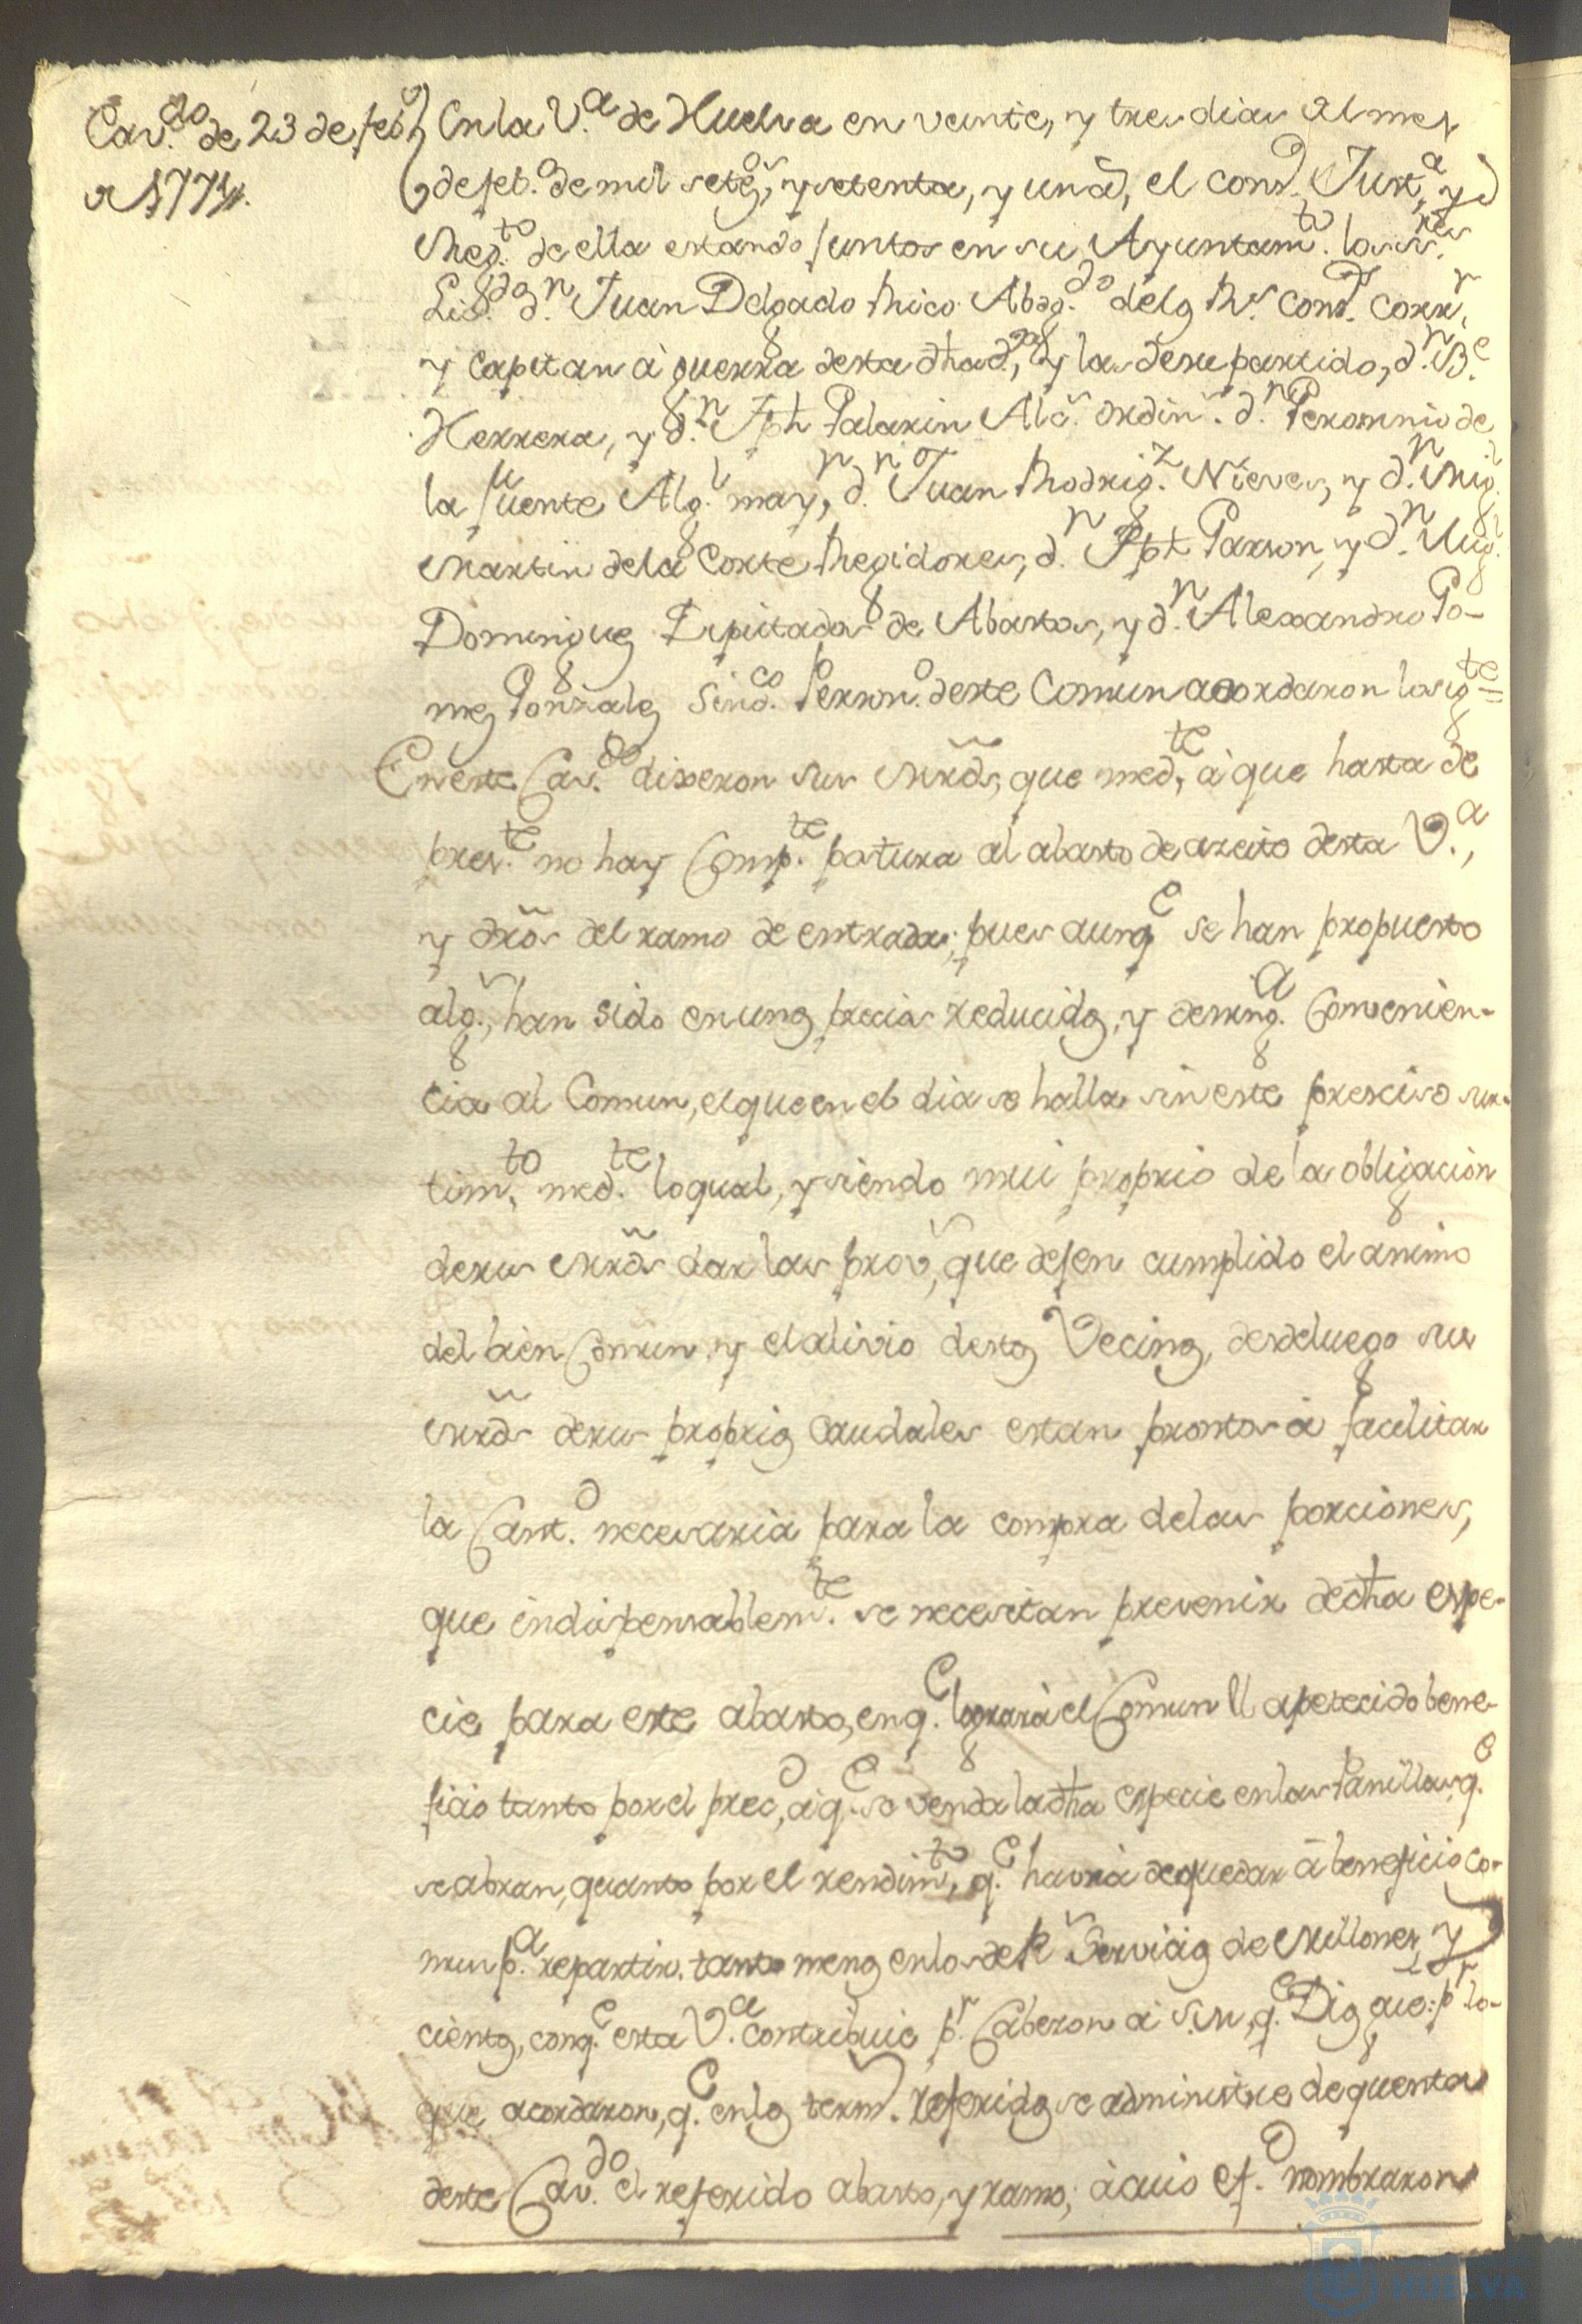 Cav.do de 23 de feb.o
de 1771.
En la V.a de Huelva en veinte, y tres dias del mes
de feb.o de mil seteg.s, y setenta, y un a.s, el cons.o Just.a, y
Reg.to de ella estando juntos en su Ayuntam.to los s.res
Liz.do d.n Juan Delgado Rico Abog.do de los R.s cons.s Corr.r
y Capitan à guerra desta dha, y las de su partido, d.n B.e
Herrera, y d.n Jph Palarin Alc.s ordin.s d.n Geronnio de
la fuente Alg.l may.r, d.n Juan Rodrig.z Nieves, y d.n Mig.l
Martin de la Corte Regidores, d.n Jph Garzon, y d.n Mig.l
Dominguez Diputados de Abastos, y d.n Alexandro Go-
mez Gonzalez Sind.co Person.o deste Comun acordaron lo sig.te =
En este Cav.do dixeron sus mrds, que med.te à que hasta de
pres.te no hay Comp.te postura al abasto de azeite desta V.a,
y dros del ramo de entrada; pues aunq.e se han propuesto
alg.s, han sido en unos precios reducidos, y de ning.a Convenien-
cia al Comun, el que en el dia se halla sin este presciso sur-
tim.to med.te lo qual, y siendo mui proprio de la obligacion
de sus mrds dar las prov.s, que dejen cumplido el animo
del bien Comun, y el alivio destos Vecinos, desde luego sus
mrds de sus proprios Caudales estan prontos à facilitar
la Cant.d necesaria para la compra de las porciones,
que indispensablem.te se necesitan prevenir de dha espe-
cie para este abasto, en q.e lograrà el Comun el apetecido bene-
ficio tanto por el prec.o, à q.e se venda la dha especie en las Panillas, q.e
se abran, quanto por el rendim.to, q.e havrà de quedar à beneficio co-
mun p.a repartir tanto menos en los de R.s Servicios de Millones, y
cientos, con q.e esta V.a contribuie p.r Caberon à S. M., q.e Dios gue: p.r lo-
que acordaron, q.e en los term.s referidos se administre de quenta
deste Cav.do el referido abasto, y ramo, à cuio ef.o nombraron
HUELVA